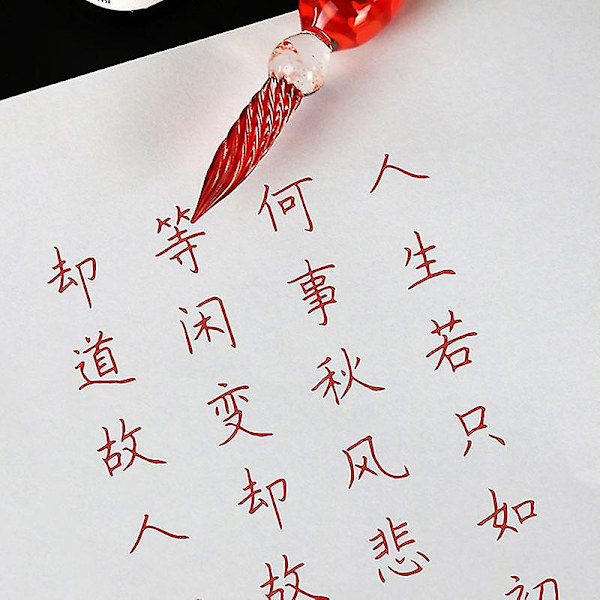 人生若只如初
何事秋风悲
等闲变却故
却道故人